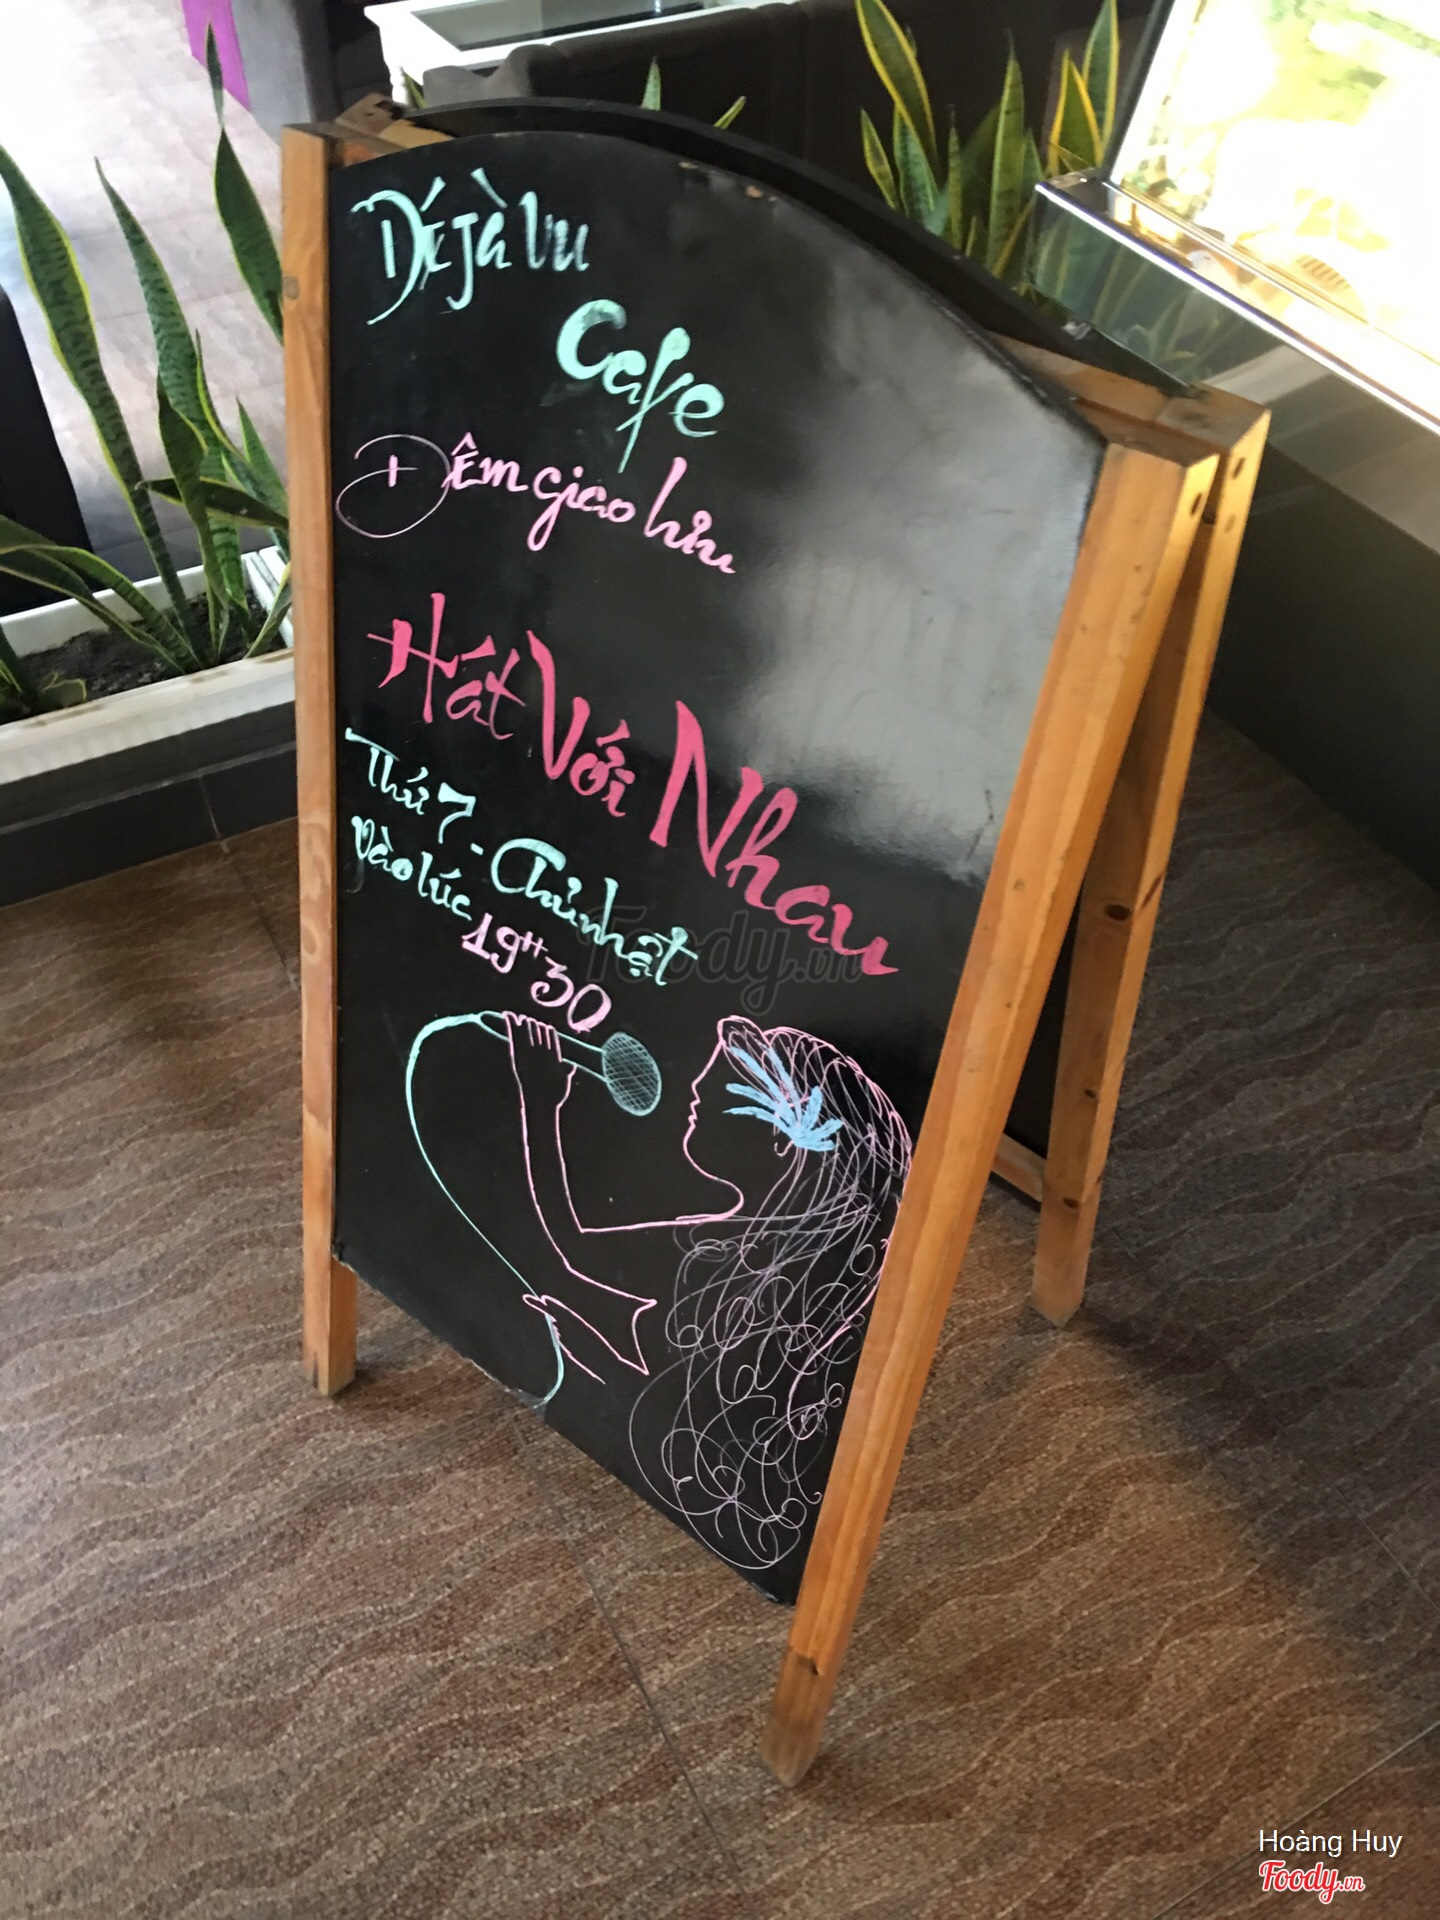 Déjà Vu
Cafe
Đêm giao lưu
Hát Với Nhau
Thứ 7 - Chủ nhật
Vào lúc 19H30
Foody.vn
Hoàng Huy
Foody.vn